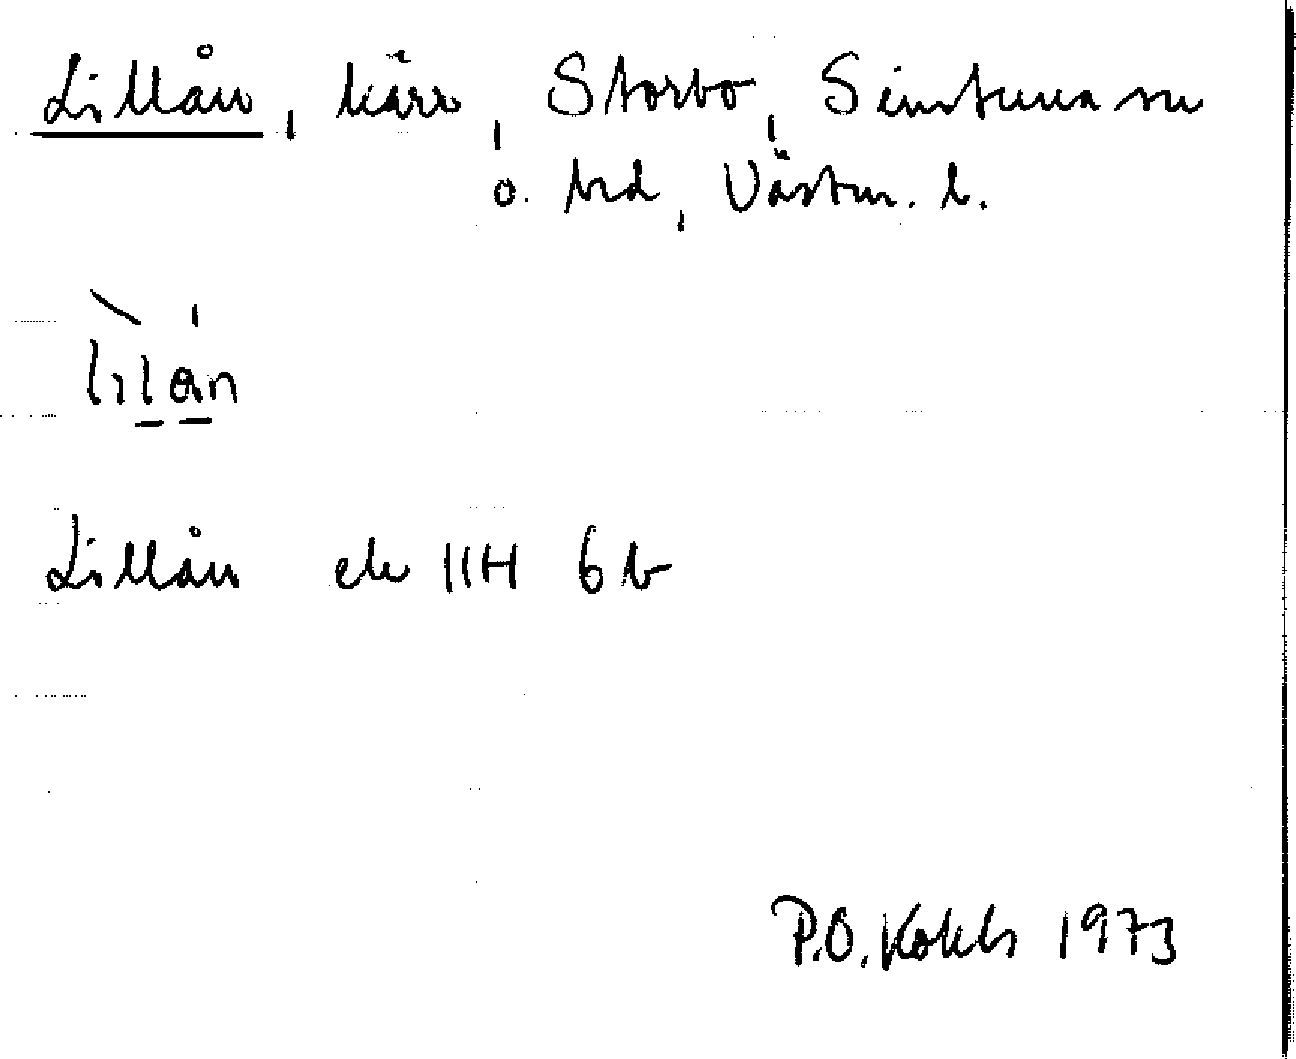 Lillån, kärr, Storbo, Simtuna sn
o. hd, Västm. l.
Lillån ek 11H 6b
P.O. 1973